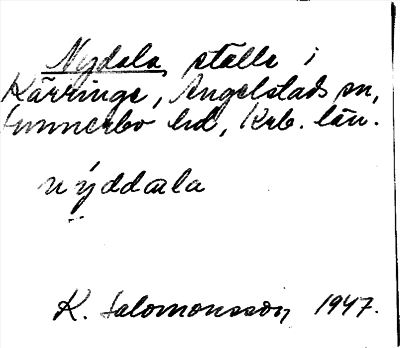 Nydala, ställe i
Kärringe, Angelstads sn,
Sunnerbo hd, Krb. län.
nýddala
K. Salomonsson, 1947.